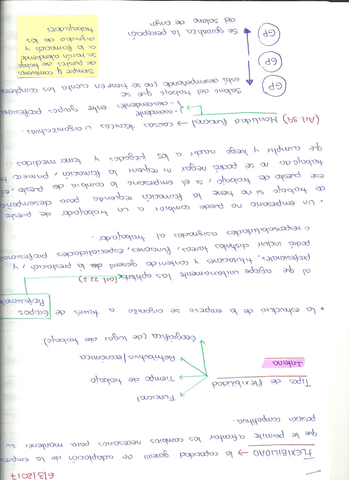 6/3/2017
FLEXIBILIDAD → la capacidad general de adaptación de la empres
que le permite afrontar los cambios necesarios para mantener su
posición competitiva.
Tipos de flexibilidad
Interna
Funcional
Tiempo de trabajo
Retributiva/económica
Geográfica (de lugar de trabajo)
• La estructura de la empresa se organiza a través de Grupos
Profesiona
(art. 22.2)
al que agrupe unitariamente las aptitudes
profesionales, titulaciones y contenido general de la prestación, y
podrá incluir distintas tareas, funciones, especialidades profesiona
o responsabilidades asignadas al trabajador.
• Un empresario no puede cambiar a un trabajador de puesto
de trabajo si no tiene la formación requerida para desempeñar
ese puesto de trabajo, si el empresario lo cambia de puesto, el
trabajador no se podrá negar ni requerir la formación, primero
que cumplir y luego acudir a los juzgados y tomar medidas
(Art 39) Movilidad funcional → causas técnicas u organizativas.
- ascendente
- descendente
entre grupos profesiona
Salario del trabajo que se
está desempeñando (no se tienen en cuenta los complem
GP
GP
GP
Se garantiza la percepción
del salario de origen
Siempre y cuando
de puestos de trabajo
se tendrá
a la formación y
dignidad de los
trabajadores